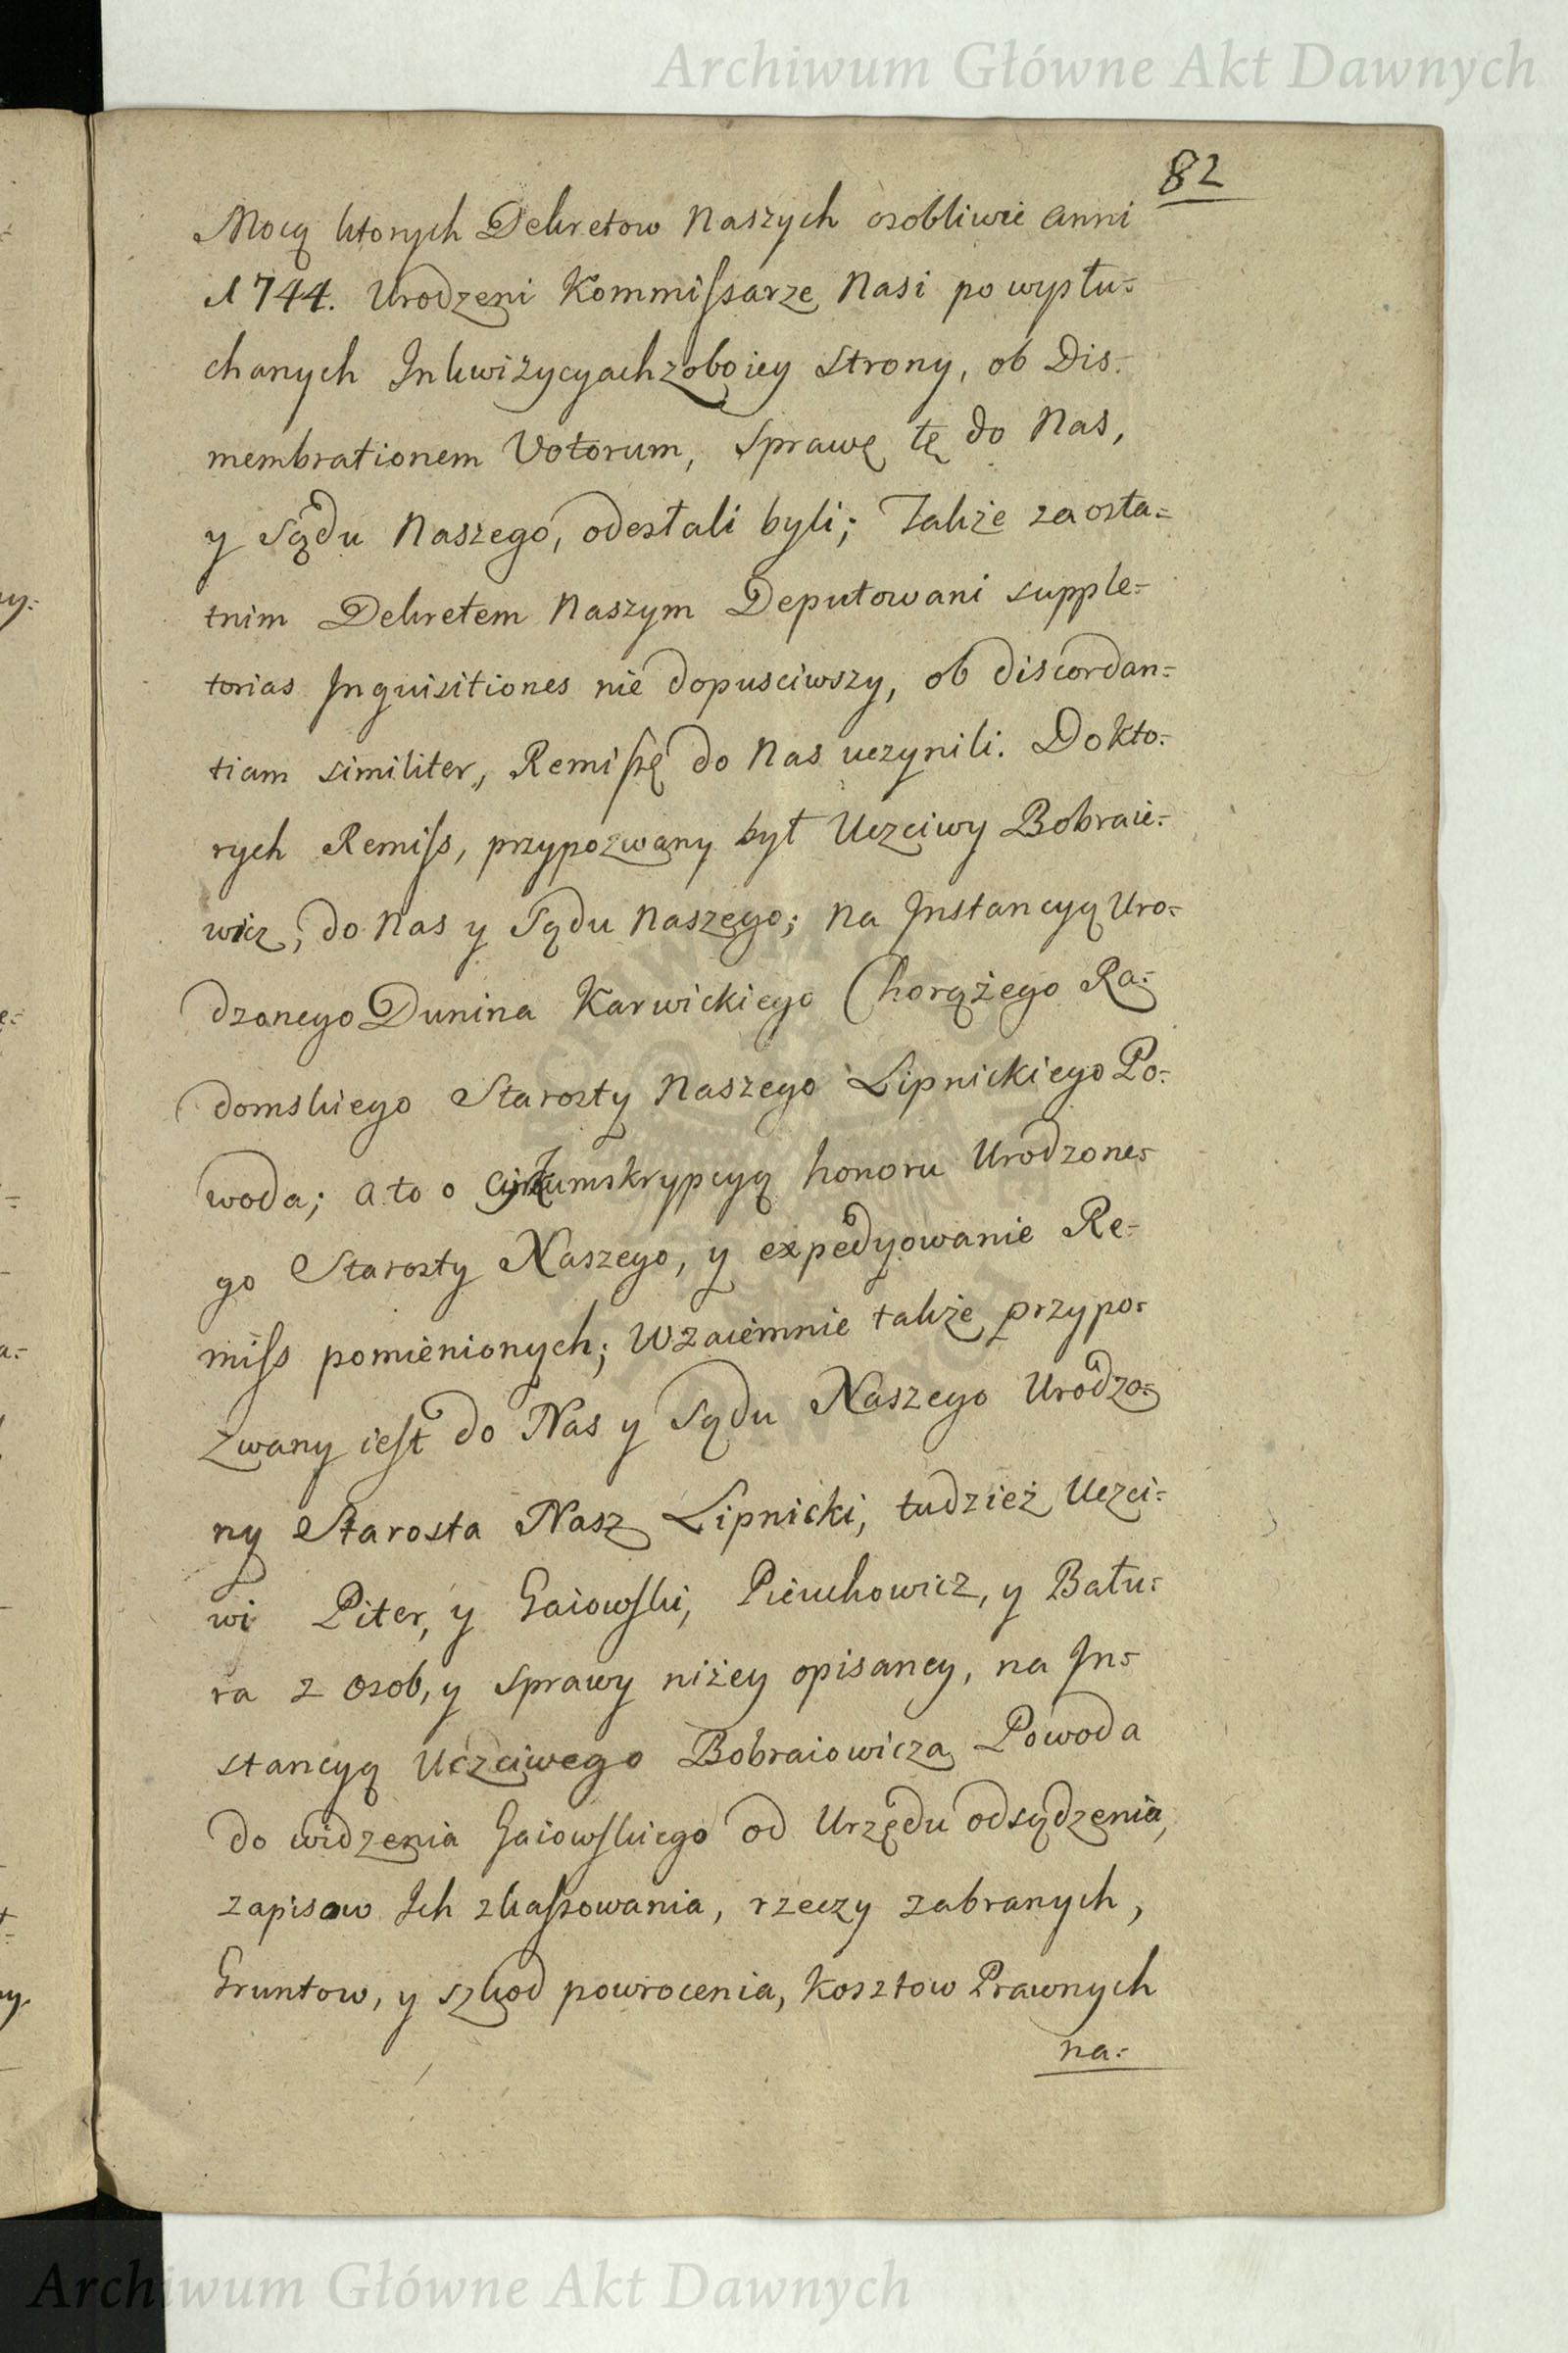 Archiwum Główne Akt Dawnych
82
Mocą ktorych Dekretow Naszych osobliwie Anni
1744. Urodzeni Kommissarze Nasi po wysłu=
chanych Inkwizycyach z oboiey Strony, ob Dis=
membrationem Votorum, Sprawę tę do Nas,
y Sądu Naszego, odesłali byli; Także za osta=
tnim Dekretem Naszym Deputowani supple=
torias Inquisitiones nie dopusciwszy, ob discordan=
tiam similiter, Remissę do Nas uczynili. Do kto=
rych Remiss, przypozwany był Uczciwy Bobraie=
wicz, do Nas y Sądu Naszego; Na Instancyą Uro=
dzonego Dunina Karwickiego Chorążego Ra=
domskiego Starosty Naszego Lipnickiego Po=
woda; a to o Cirkumskrypcyą honoru Urodzone=
go Starosty Naszego, y expedyowanie Re=
miss pomienionych; Wzaiemnie także przypo=
zwany iest do Nas y Sądu Naszego Urodzo=
ny Starosta Nasz Lipnicki, tudzież Uczci=
wi Piter, y Gaiowski, Pieuchowicz, y Batu=
ra z Osob, y Sprawy niżey opisaney, na In=
stancyą Uczciwego Bobraiowicza Powoda
do widzenia Gaiowskiego od Urzędu odsądzenia,
zapisow Ich zkassowania, rzeczy zabranych,
Gruntow, y szkod powrocenia, Kosztow Prawnych
na=
Archiwum Główne Akt Dawnych